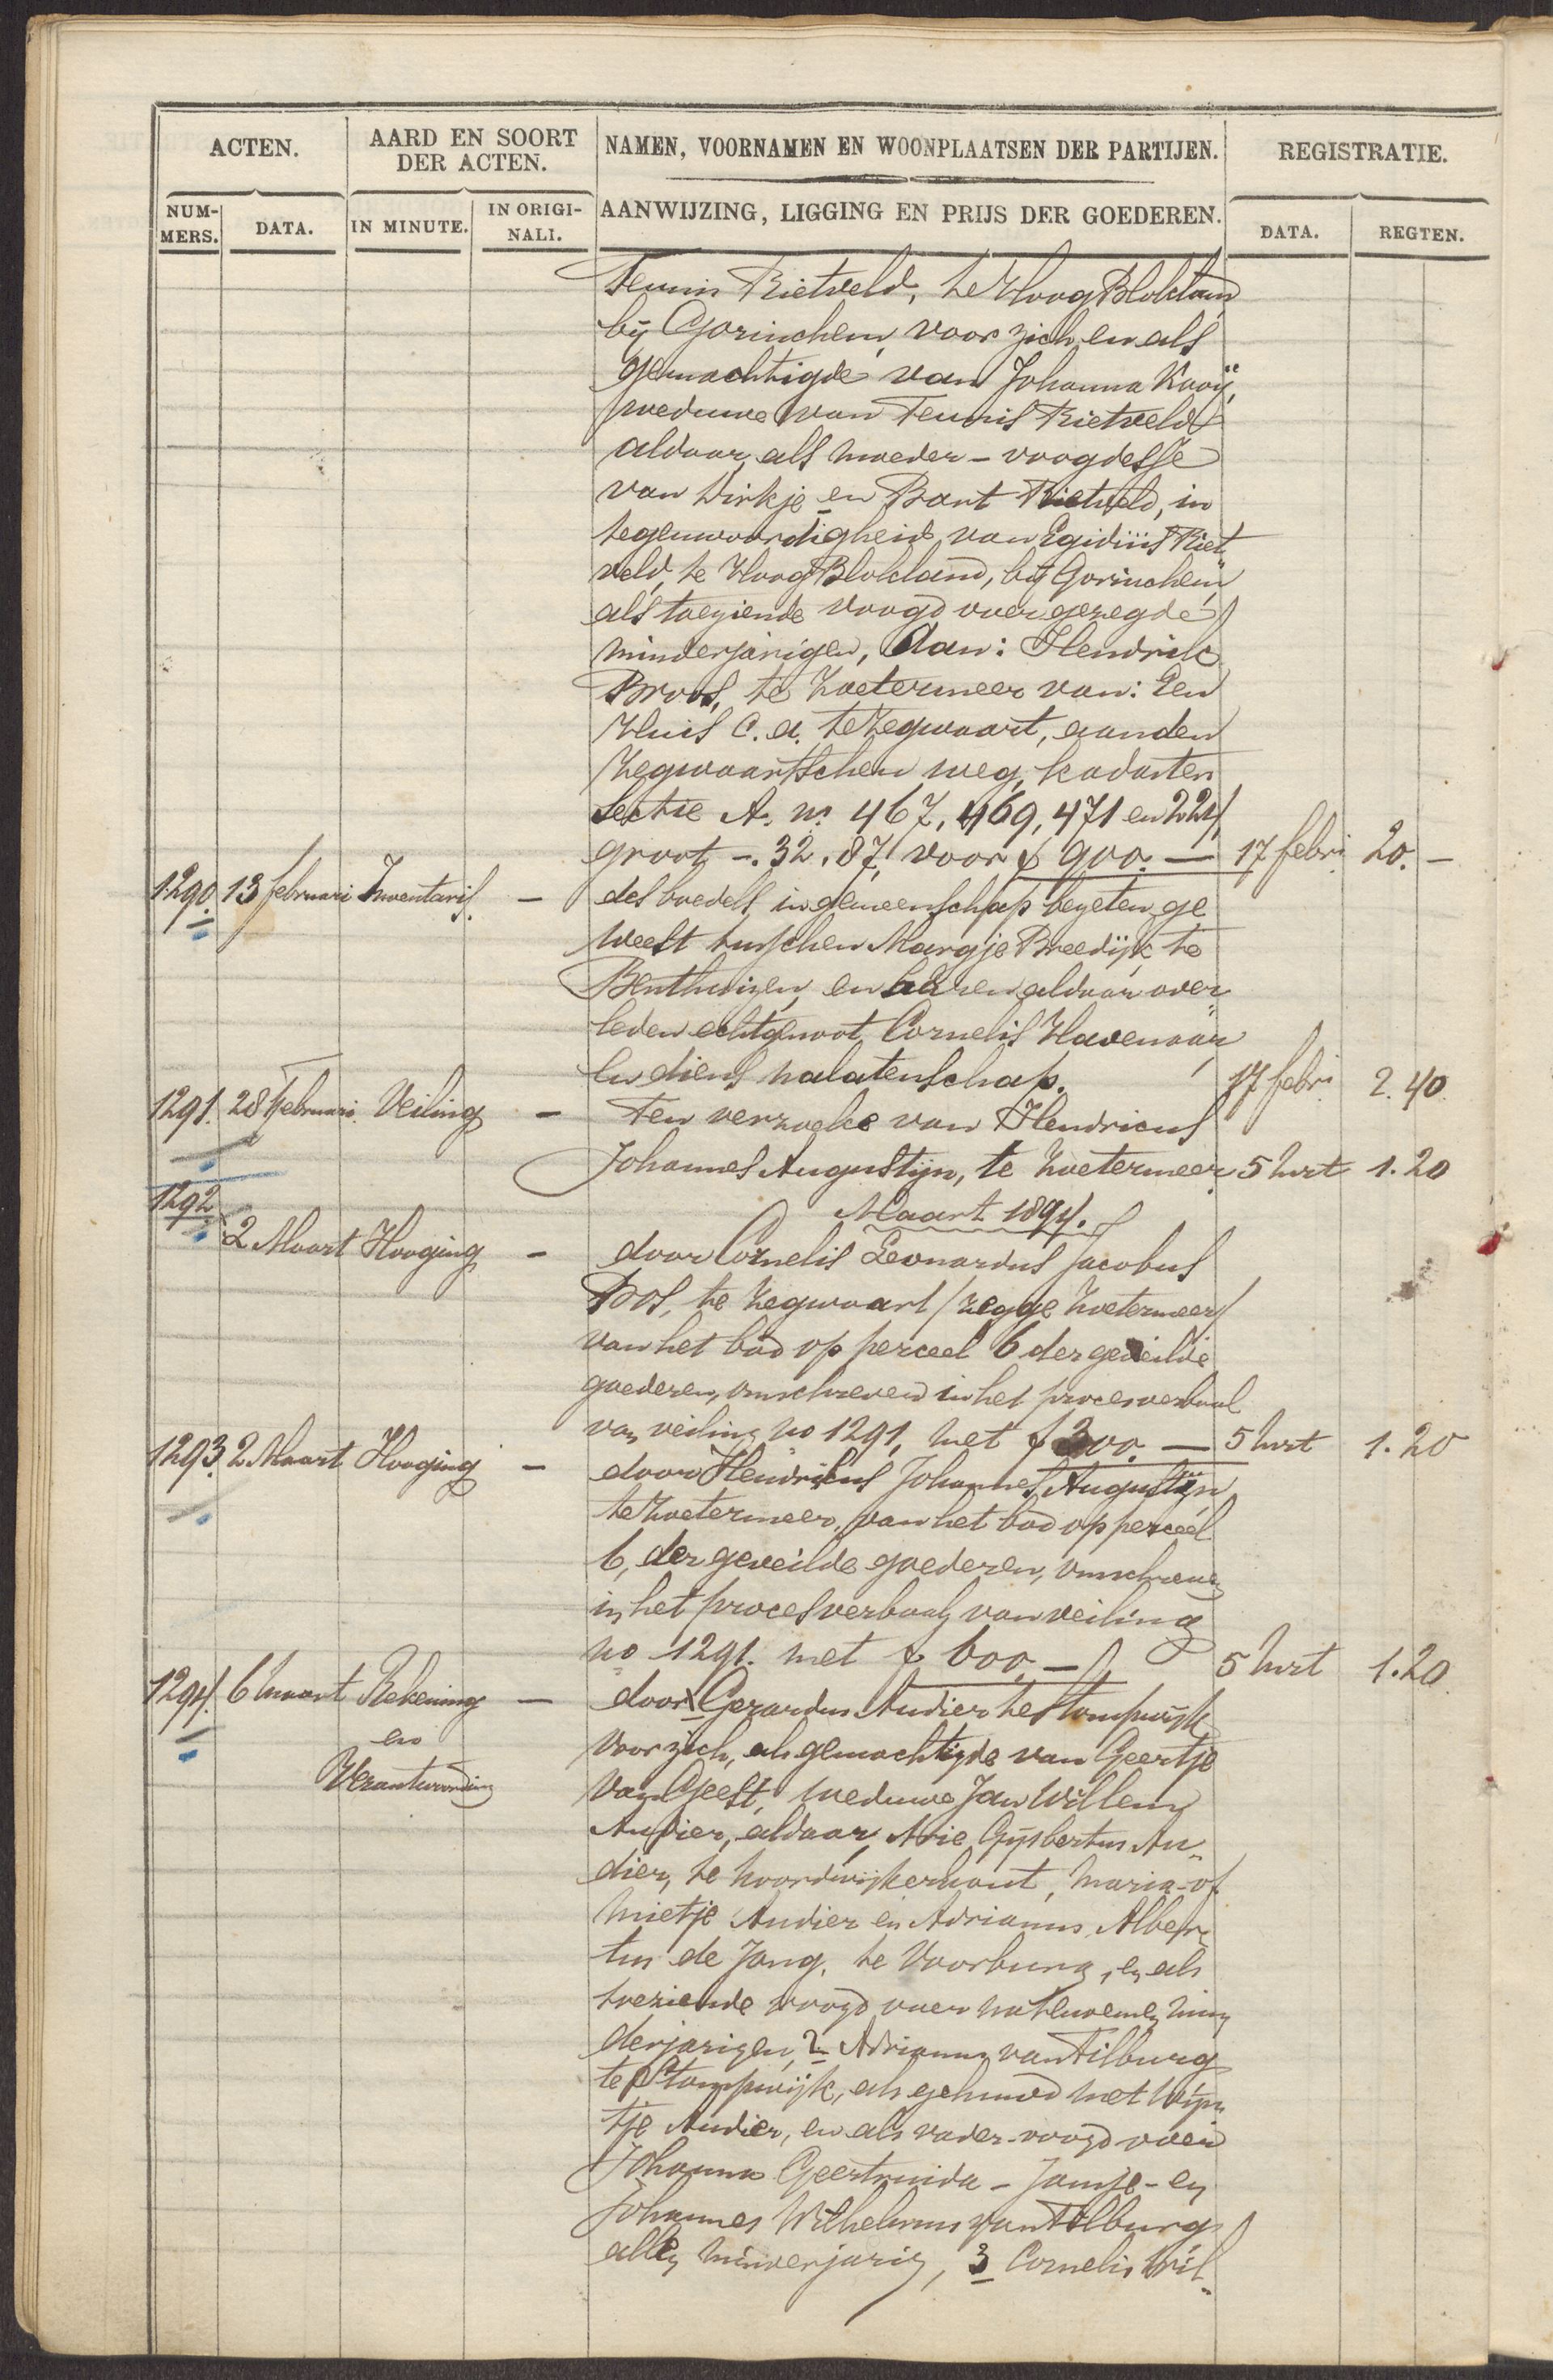 ACTEN.
AARD EN SOORT
DER ACTEN.
NAMEN, VOORNAMEN EN WOONPLAATSEN DER PARTIJEN.
REGISTRATIE.
NUM-
MERS.
DATA.
IN MINUTE.
IN ORIGI-
NALI.
AANWIJZING, LIGGING EN PRIJS DER GOEDEREN.
DATA.
REGTEN.
Teunis Rietveld, te Hoog Blokland
bij Gorinchem, voor zich en als
gemachtigde van Johanna Kooij,
weduwe van Teunis Rietveld
aldaar, als moeder-voogdesse
van Dirkje en Bart Rietveld, in
tegenwoordigheid van Egidius Riet
veld, te Hoog Blokland, bij Gorinchem
als toeziende voogd over gezegde
minderjarigen, Aan: Hendrik
Broos, te Zoetermeer van: Een
Huis c.a. te Zegwaart, aan den
Zegwaartschen weg, kadaster
Sectie A. no. 467, 469, 471 en 224
groot -.32.87, voor f 900.— 17 febri 20.—
1290. 13 februari Inventaris. — des boedels in gemeenschap bezeten ge
weest tusschen Margje Breedijk, te
Benthuizen, en haren aldaar over-
leden echtgenoot, Cornelis Havenaar
en diens nalatenschap. 17 febri 2.40.
1291. 28 Februari. Veiling — Ten verzoeke van Hendricus
Johannes Augustijn, te Zoetermeer. 5 Mrt 1.20
Maart 1894.
1292 2 Maart Hooging — door Cornelis Leonardus Jacobus
Bos, te Zegwaart / zegge Zoetermeer /
van het bod op perceel 6 der geveilde
goederen, omschreven in het procesverbaal
van veiling no 1291, met f 300.— 5 Mrt 1.20
1293. 2 Maart Hooging — door Hendrikus Johannes Augustijn
te Zoetermeer, van het bod op perceel
6, der geveilde goederen, omschreven
in het procesverbaal van veiling
no 1291. met f 600.— 5 Mrt 1.20.
1294. 6 Maart Rekening — door 1 Gerardus Andier te Stompwijk
en
Verantwoording
voor zich, als gemachtigde van Geertje
van Geest, weduwe Jan Willem
Andier, aldaar, Arie Gijsbertus An-
dier, te Noordwijkerhout, Maria-of
Mietje Andier en Adrianus Alber-
tus de Jong, te Voorburg, en als
toeziende voogd over natenoemen min
derjarigen, 2 Adrianus van Tilburg
te Stompwijk, als gehuwd met Wijn
tje Andier, en als vader-voogd over
Johanna Geertruida - Jansje - en
Johannes Wilhelmus van Tilburg
allen minderjarig, 3 Cornelis Wil-